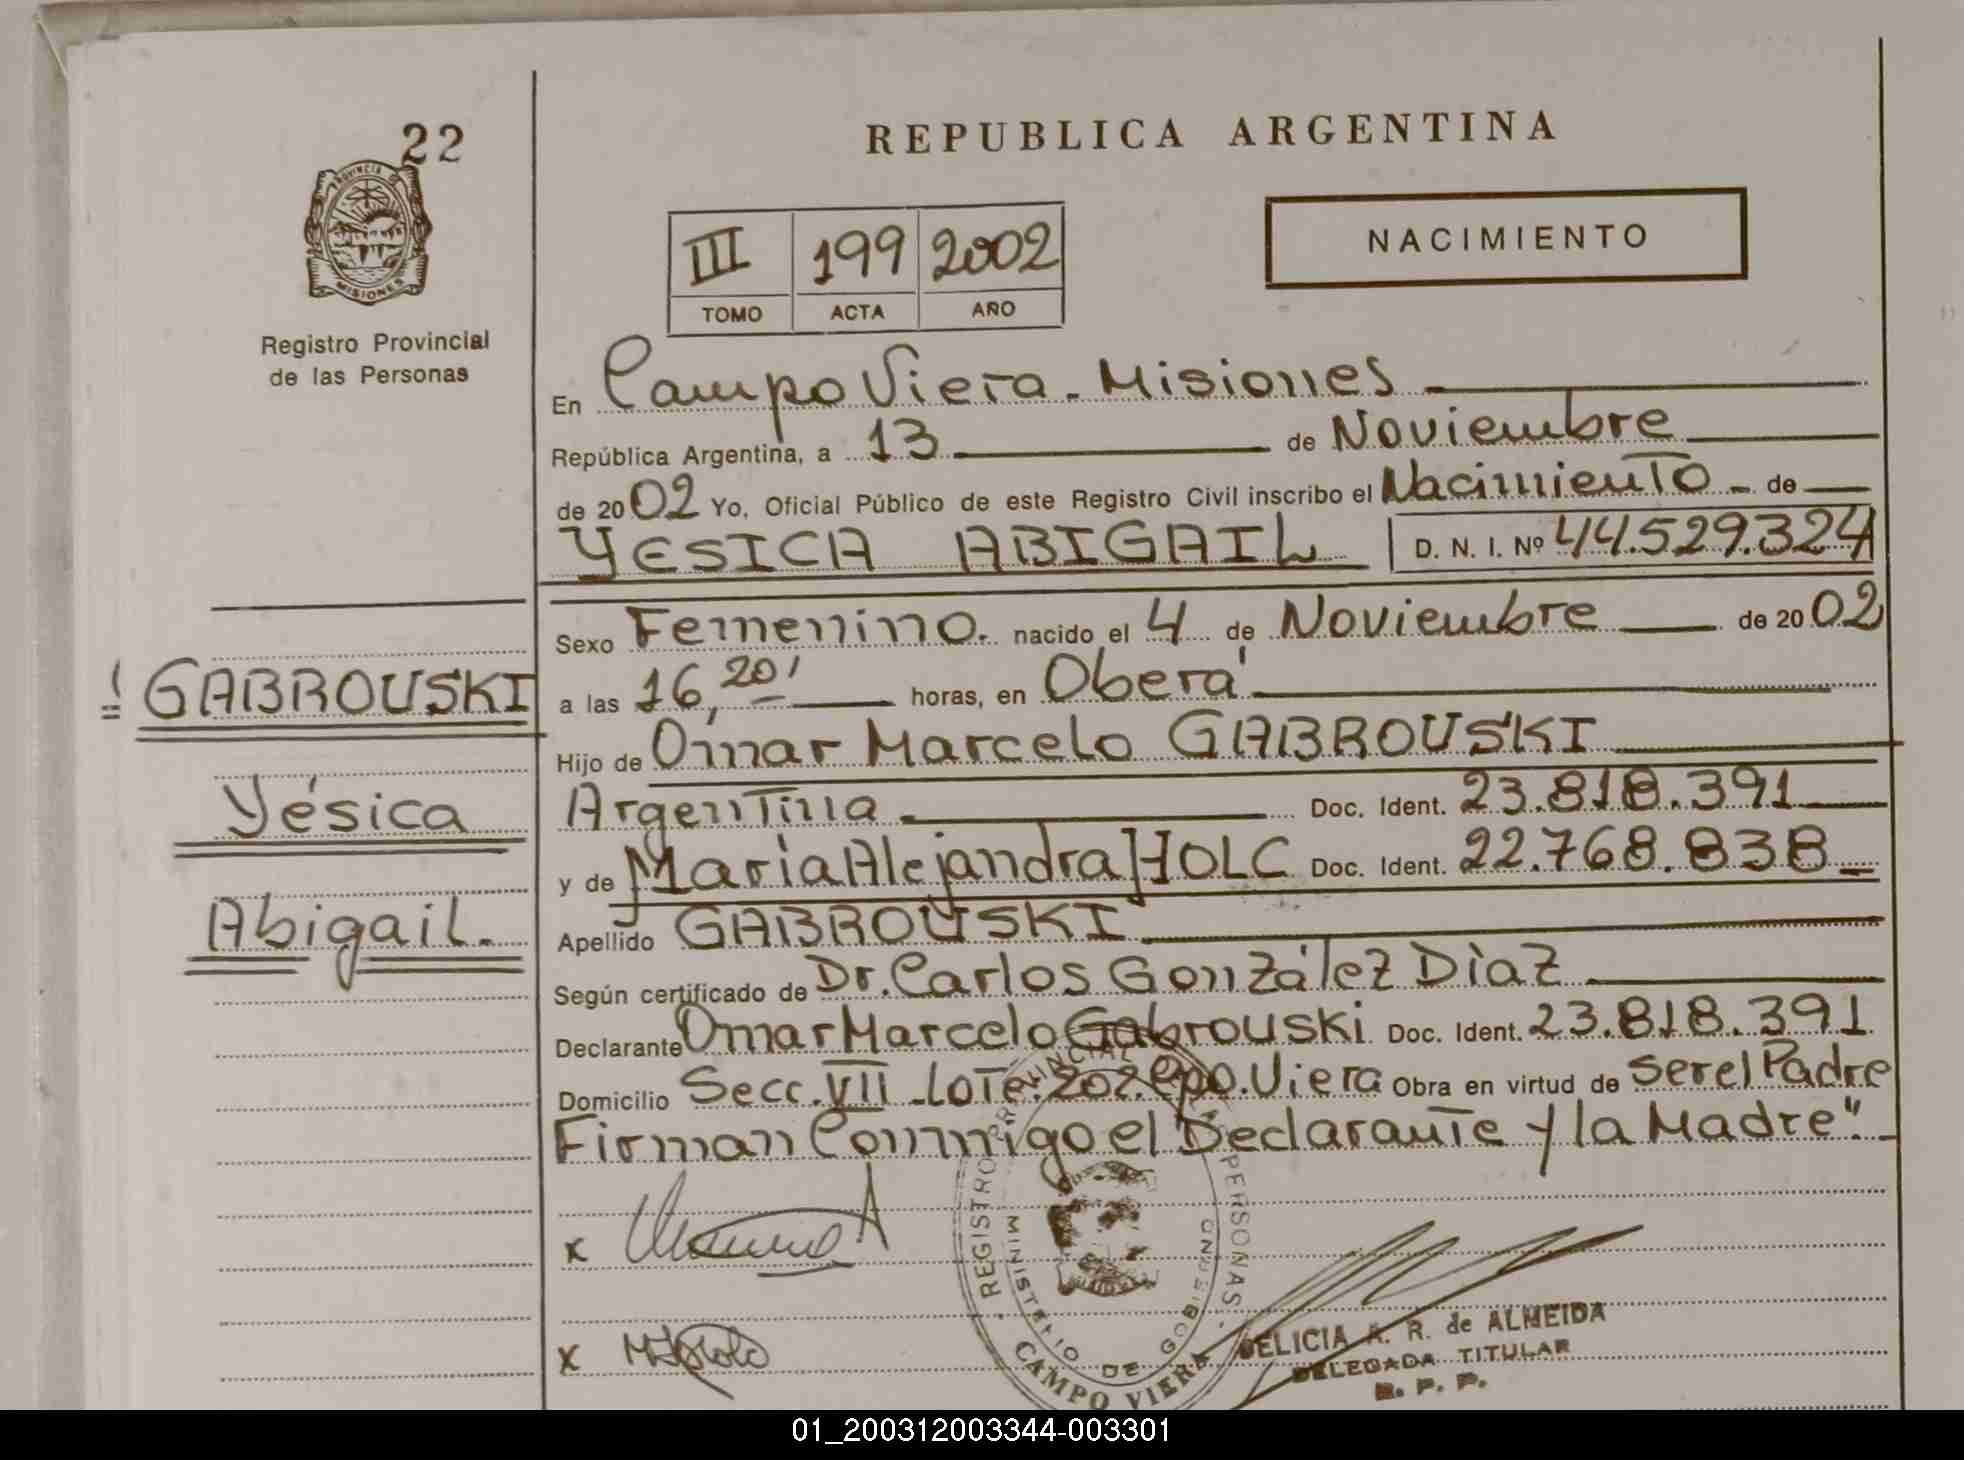 22
PROVINCIA DE
MISIONES
Registro Provincial
de las Personas
GABROUSKI
Yésica
Abigail.
REPUBLICA ARGENTINA
III 199 2002
TOMO ACTA AÑO
NACIMIENTO
En Campo Viera - Misiones
República Argentina, a 13 de Noviembre
de 2002 Yo, Oficial Público de este Registro Civil inscribo el Nacimiento - de
YESICA ABIGAIL D. N. I. Nº 44.529.324
Sexo Femenino. nacido el 4 de Noviembre de 2002
a las 16,20' horas, en Oberá
Hijo de Omar Marcelo GABROUSKI
Argentina Doc. Ident. 23.818.391
y de María Alejandra HOLC Doc. Ident. 22.768.838
Apellido GABROUSKI
Según certificado de Dr. Carlos González Díaz
Declarante Omar Marcelo Gabrouski Doc. Ident. 23.818.391
Domicilio Secc. VII - Lote. 202. Cpo. Viera Obra en virtud de ser el Padre
Firman Conmigo el "Declarante y la Madre".
x
x
REGISTRO PROVINCIAL PERSONAS
MINISTERIO DE GOBIERNO
CAMPO VIERA
DELICIA A. R. de ALMEIDA
DELEGADA TITULAR
R. P. P.
01_200312003344-003301